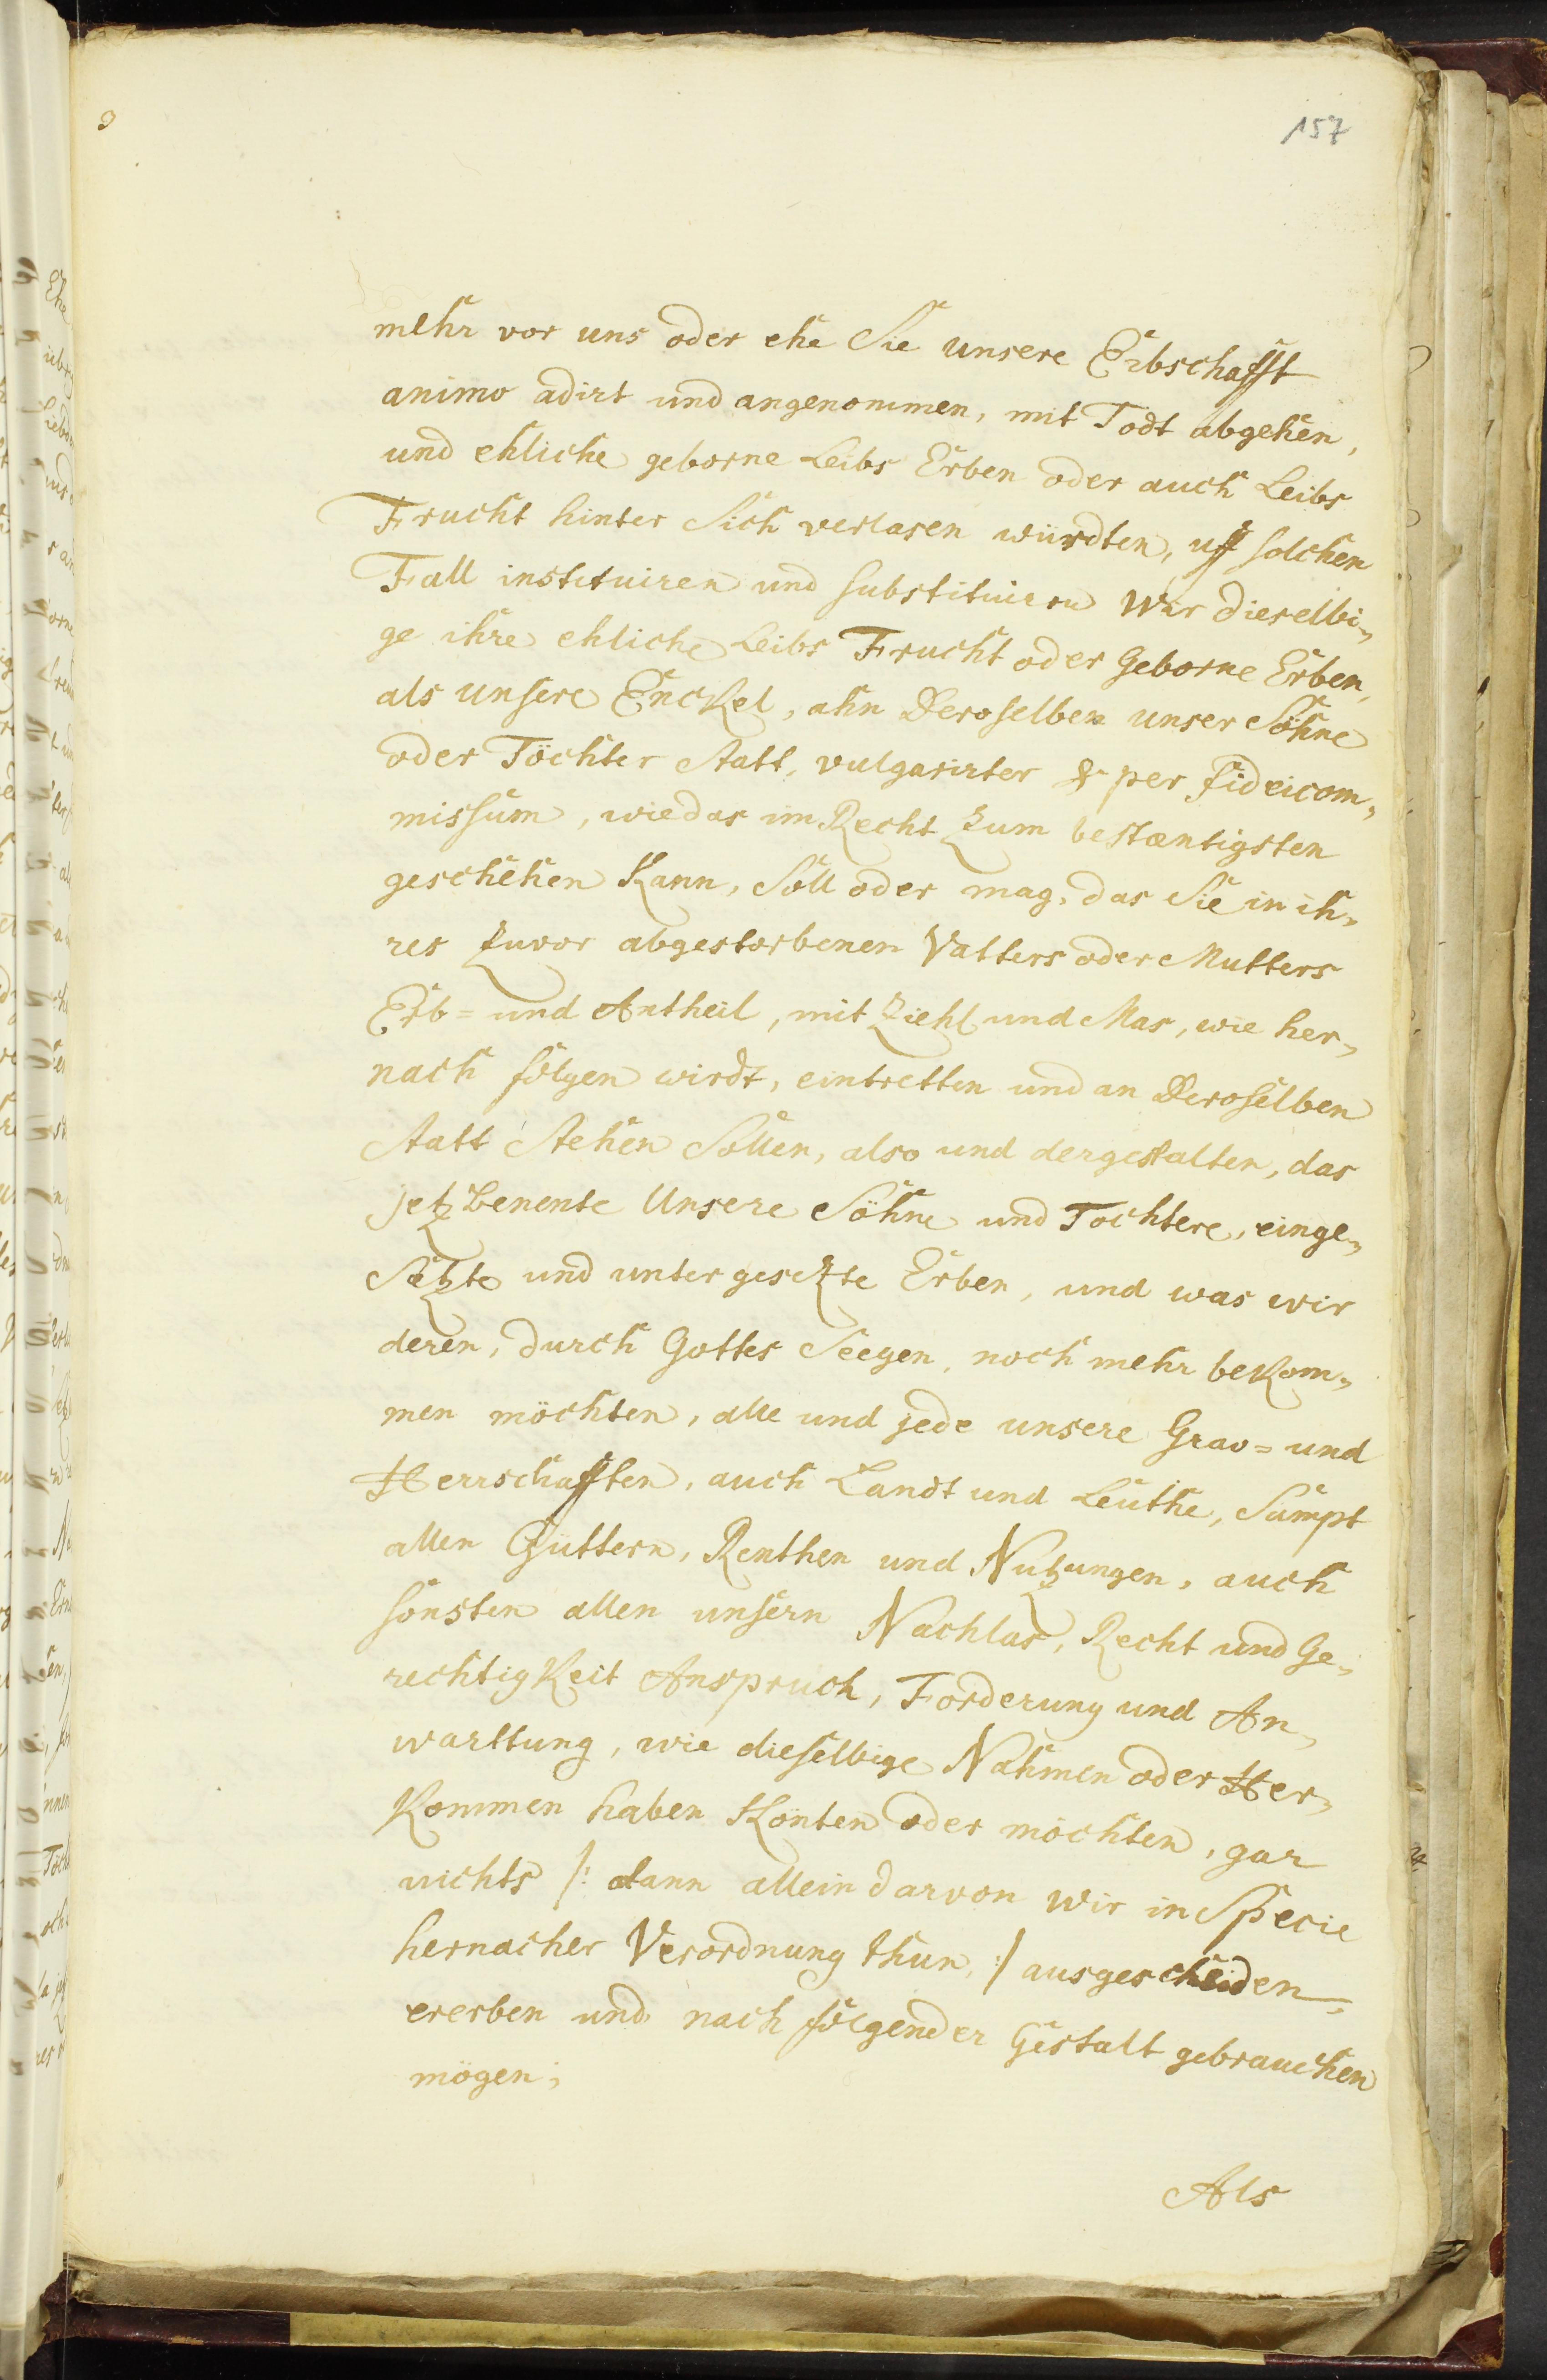 157
mehr vor uns oder ehe Sie unsere Erbschafft
animo adirt und angenommen, mit Todt abgehen,
und ehliche geborne Leibs Erben oder auch Leibs
Frucht hinter Sich verlasen würdten, uff solchen
Fall instituiren und substituiren Wir dieselbi„
ge ihre ehliche Leibs Frucht oder Geborne Erben,
als unsere Enckel, ahn Deroselben unser Söhne
oder Töchter statt, vulgariter & per fideicom„
missum, wie das im Recht Zum bestæntigsten
geschehen Kann, Soll oder mag, das Sie in ih„
res Zuvor abgestorbenen Vatters oder Mutters
Erb= und Antheil, mit Ziehl und Mas, wie her„
nach folgen wirdt, eintretten und an Deroselben
statt stehen Sollen, also und dergestalten, das
jetz benente Unsere Söhne und Tochtere, einge„
Setzte und unter gesetzte Erben, und was wir
deren, durch Gottes Seegen, noch mehr beKom„
men möchten, alle und jede unsere Grav= und
Herrschafften, auch Landt und Leuthe, Sampt
allen Güttern, Renthen und Nutzungen, auch
sonsten allen unsern Nachlas, Recht und Ge„
rechtigKeit Anspruch, Forderung und An„
warttung, wie dieselbige Nahmen oder Her„
Kommen haben Könten oder möchten, gar
nichts /: dann allein darvon wir in Specie
hernacher Verordnung thun, :/ ausgescheiden,
ererben und nach folgender Gestalt gebrauchen
mögen;
Als